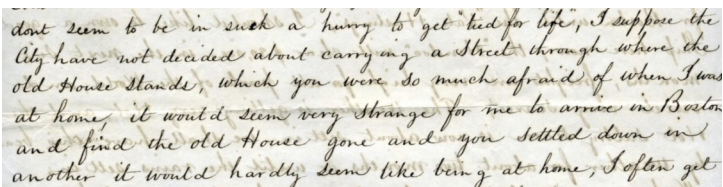 dont seem to be in such a hurry to get "tied for life", I suppose the
City have not decided about carrying a Street through where the
old House stands, which you were so much afraid of when I was
at home, it would seem very strange for me to arrive in Boston
and find the old House gone and you settled down in
another it would hardly seem like being at home, I often get